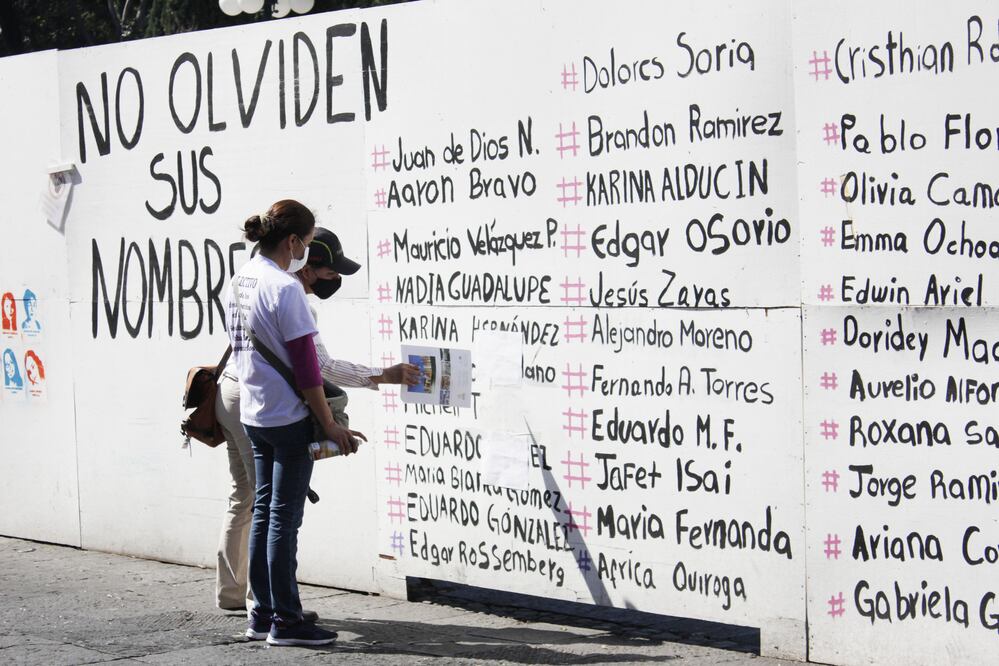 NO OLVIDEN
SUS
NOMBRE
# Juan de Dios N.
# Aaron Bravo
# Mauricio Velázquez P.
# NADIA GUADALUPE
# KARINA HERNÁNDEZ
# EDUARDO
# Maria Gómez
# EDUARDO GONZÁLEZ
# Edgar Rossemberg
# Dolores Soria
# Brandon Ramirez
# KARINA ALDUCIN
# Edgar Osorio
# Jesús Zayas
# Alejandro Moreno
# Fernando A. Torres
# Eduardo M.F.
# Jafet Isai
# Maria Fernanda
# Africa Quiroga
# Cristhian
# Pablo Flor
# Olivia Cama
# Emma Ochoa
# Edwin Ariel
# Doridey Mac
# Aurelio Alfon
# Roxana Sa
# Jorge Ramir
# Ariana Co
# Gabriela G